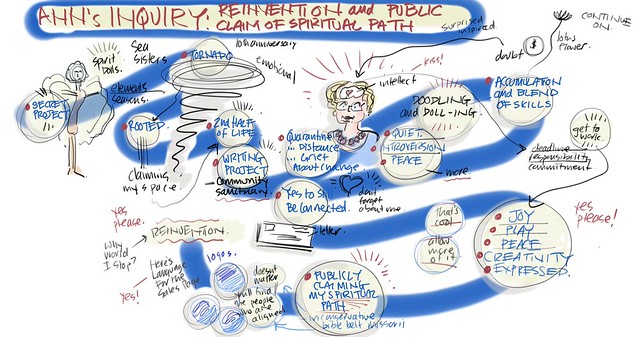 ANN'S INQUIRY: REINVENTION and PUBLIC
CLAIM OF SPIRITUAL PATH
surprised
inspired.
doubt
$
lotus
flower.
CONTINUE
ON.
Sea
Sisters
TORNADO
10th anniversary
emotional
spirit
dolls.
elements
seasons.
SECRET
PROJECT
ROOTED
claiming
my space
2nd HALF
OF LIFE
WRITING
PROJECT
community
sanctuary.
kiss!
intellect
Quarantine
... Distance
... Grief
About change
DOODLING
and DOLL-ING
QUIET.
INTROVERSION
PEACE
more.
ACCUMULATION
AND BLEND
OF SKILLS
get to
work
deadline
responsibility
commitment
Yes to
BE CONNECTED.
don't
forget
about me
letter.
yes
please.
REINVENTION.
Why
would
I stop?
Yes!
Here's
Language
For the
Sales Page
logos.
doesn't
matter
will find
the people
who are
aligned.
PUBLICLY
CLAIMING
MY SPIRITUAL
PATH.
in conservative
bible belt missouri
That's
cool
allow
more
of it
JOY
PLAY
PEACE
CREATIVITY
EXPRESSED.
yes
please!